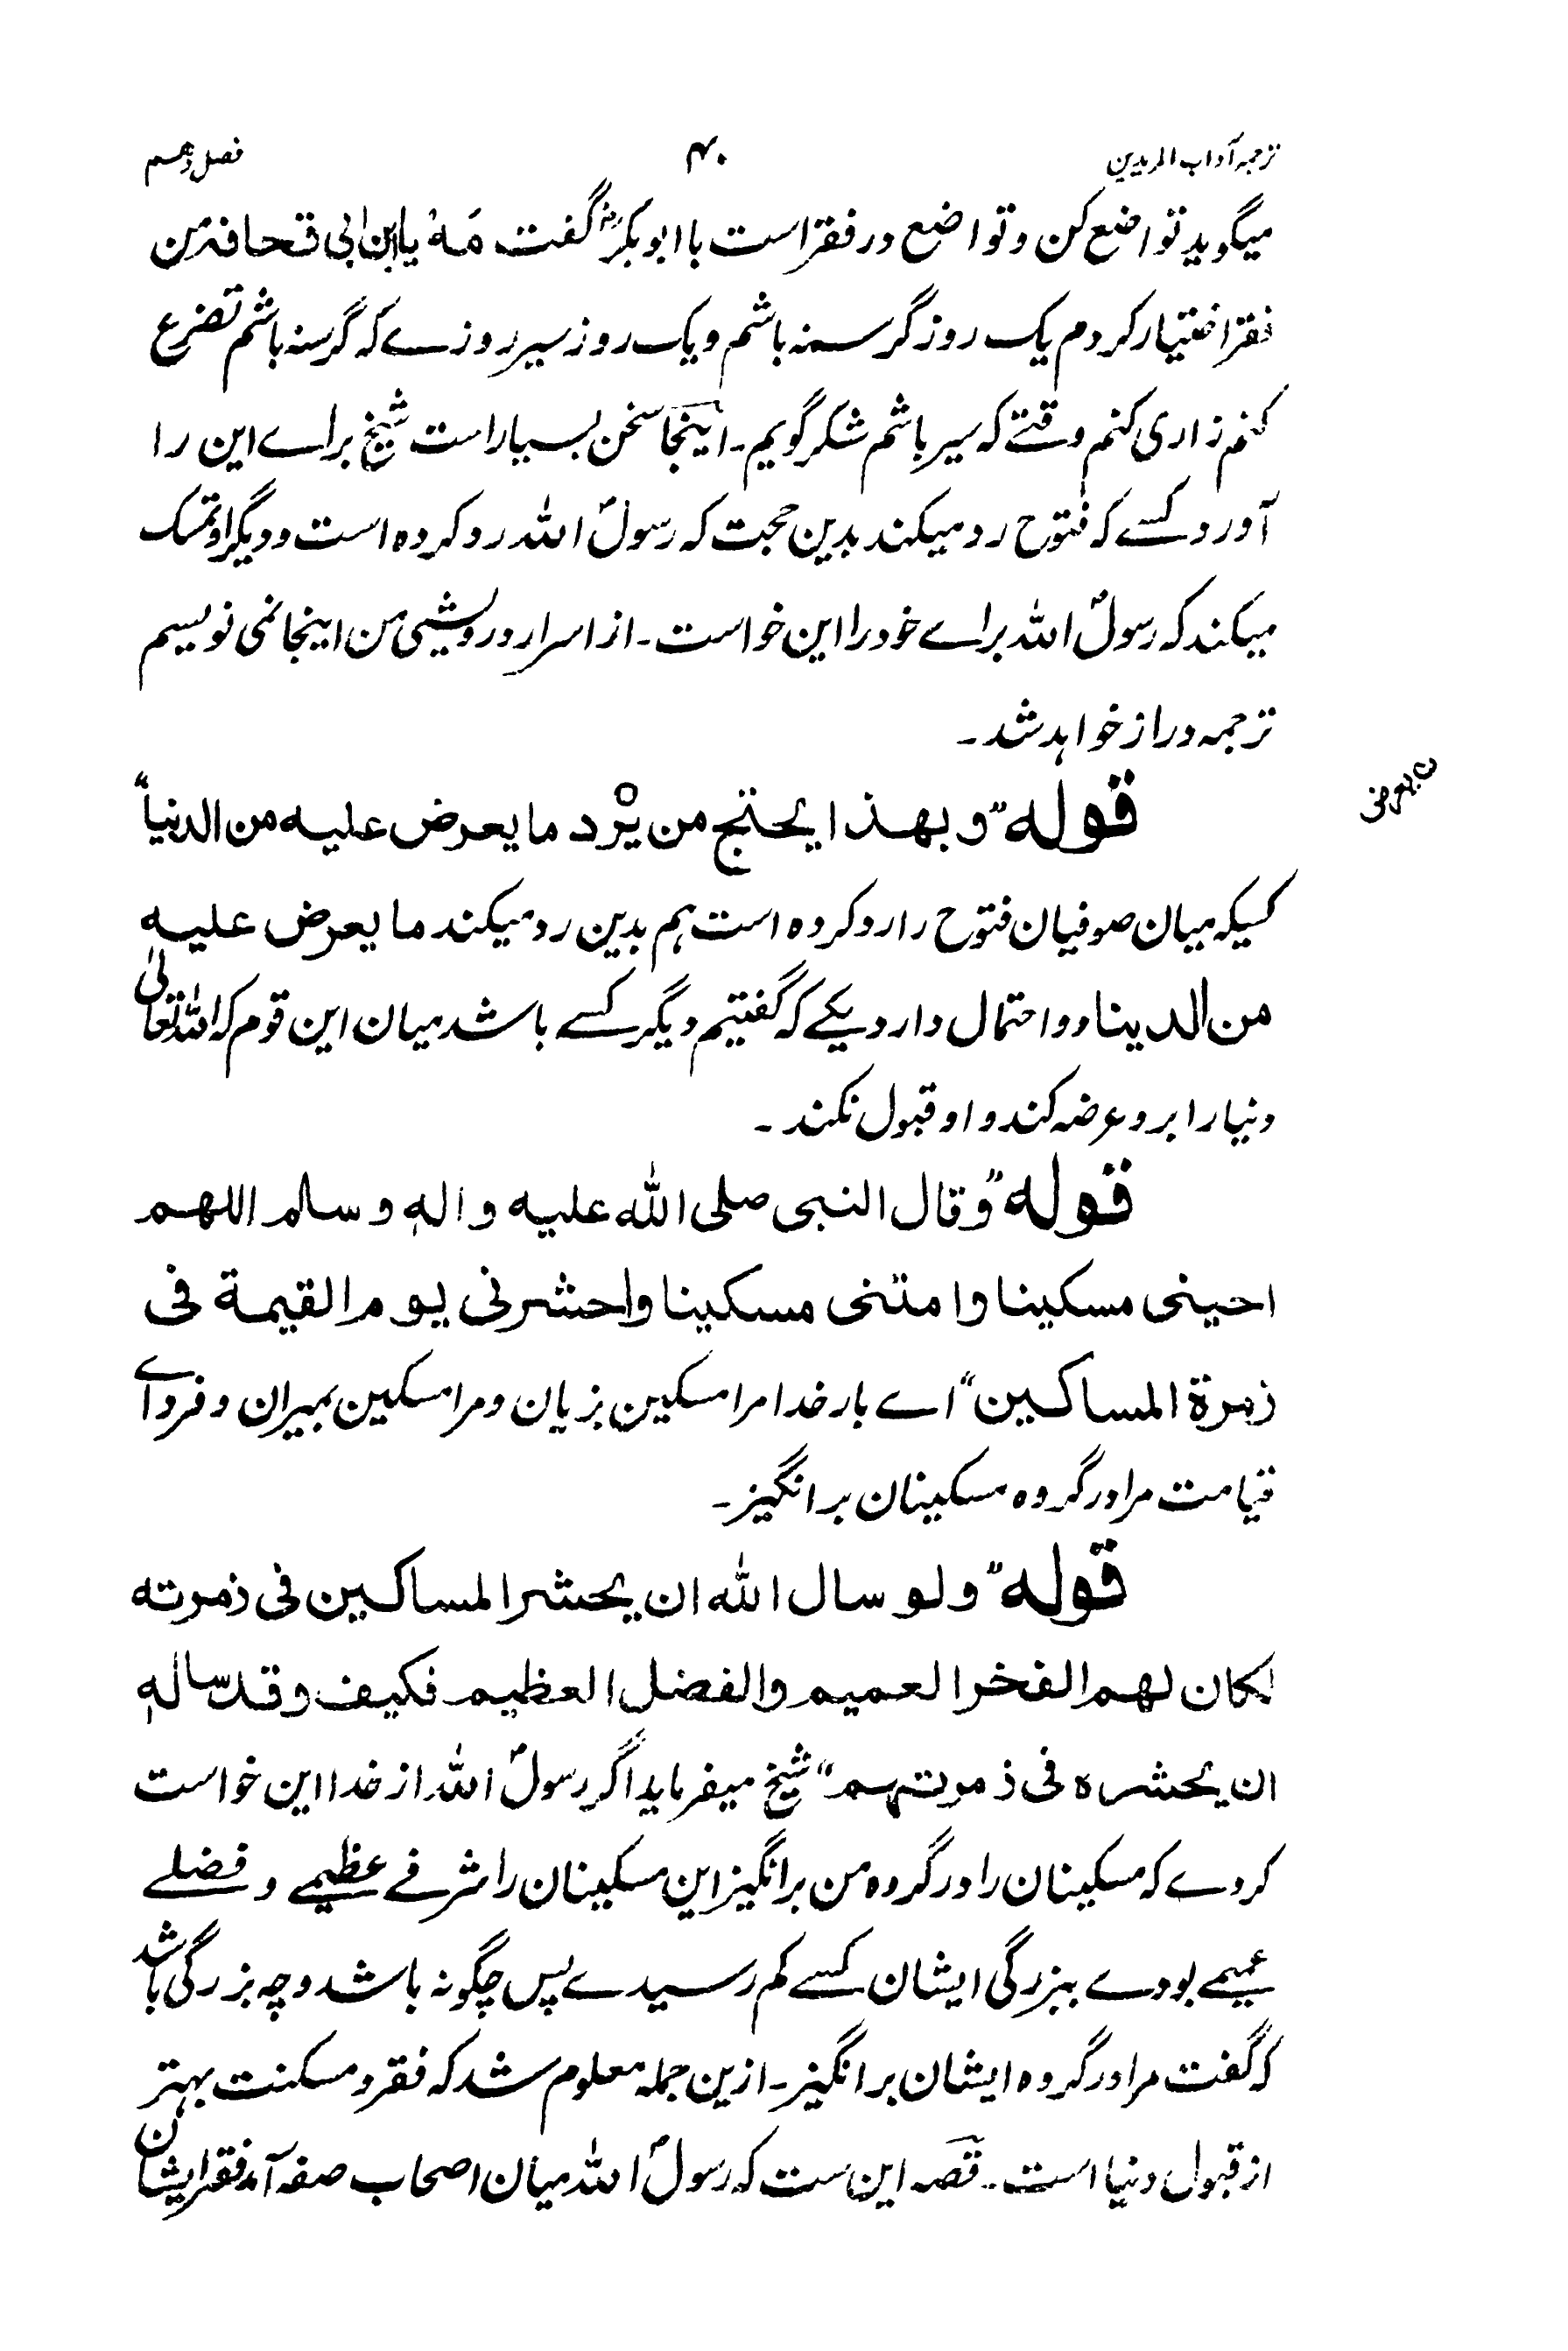 ترجمہ آداب المریدین ۴۰ فصل دہم
میگوید تواضع کن و تواضع در فقر است با ابوبکرؓ گفت مَہْ یا ابن ابی قحافہ من
فقر اختیار کردم یک روز گرسنہ باشم و یک روز سیر روزے کہ گرسنہ باشم تضرع
کنم زاری کنم وقتے کہ سیر باشم شکر گویم۔ اینجا سخن بسیار است شیخ براے این را
آورد کسے کہ فتوح رد میکند بدین حجت کہ رسولؐ اللہ رد کردہ است و دیگر او تمسک
میکند کہ رسولؐ اللہ براے خود را این خواست۔ از اسرار درویشی من اینجا نمی نویسم
ترجمہ دراز خواہد شد۔
قوله ”و بهذا یحتج من یرد ما یعرض علیه من الدنیا“
کسیکہ میان صوفیان فتوح را رد کردہ است ہم بدین رد میکند ما یعرض علیه
من الدینا دو احتمال دارد یکے کہ گفتیم دیگر کسے باشد میان این قوم کہ اللہ تعالیٰ
دنیا را برو عرضہ کند و او قبول نکند۔
قوله ”وقال النبی صلی الله علیه واله وسلم اللهم
احینی مسکینا وامتنی مسکینا واحشرنی یوم القیمة فی
زمرة المساکین“ اے بار خدا مرا مسکین بزیان و مرا مسکین بمیران و فرداے
قیامت مرا در گروہ مسکینان برانگیز۔
قوله ”ولو سال الله ان یحشر المساکین فی زمرته
لکان لهم الفخر العمیم والفضل العظیم فکیف وقد ساله
ان یحشره فی زمرتهم“ شیخ میفرماید اگر رسولؐ اللہ از خدا این خواست
کردے کہ مسکینان را در گروہ من برانگیز این مسکینان را شرفے عظیمے و فضلے
عمیمے بودے ببزرگی ایشان کسے کم رسیدے پس چگونہ باشد و چہ بزرگی باشد
کہ گفت مرا در گروہ ایشان برانگیز۔ ازین جملہ معلوم شد کہ فقر و مسکنت بہتر
از قبول دنیا است۔ قصہ این ست کہ رسولؐ اللہ میان اصحاب صفہ آمد فقر ایشان